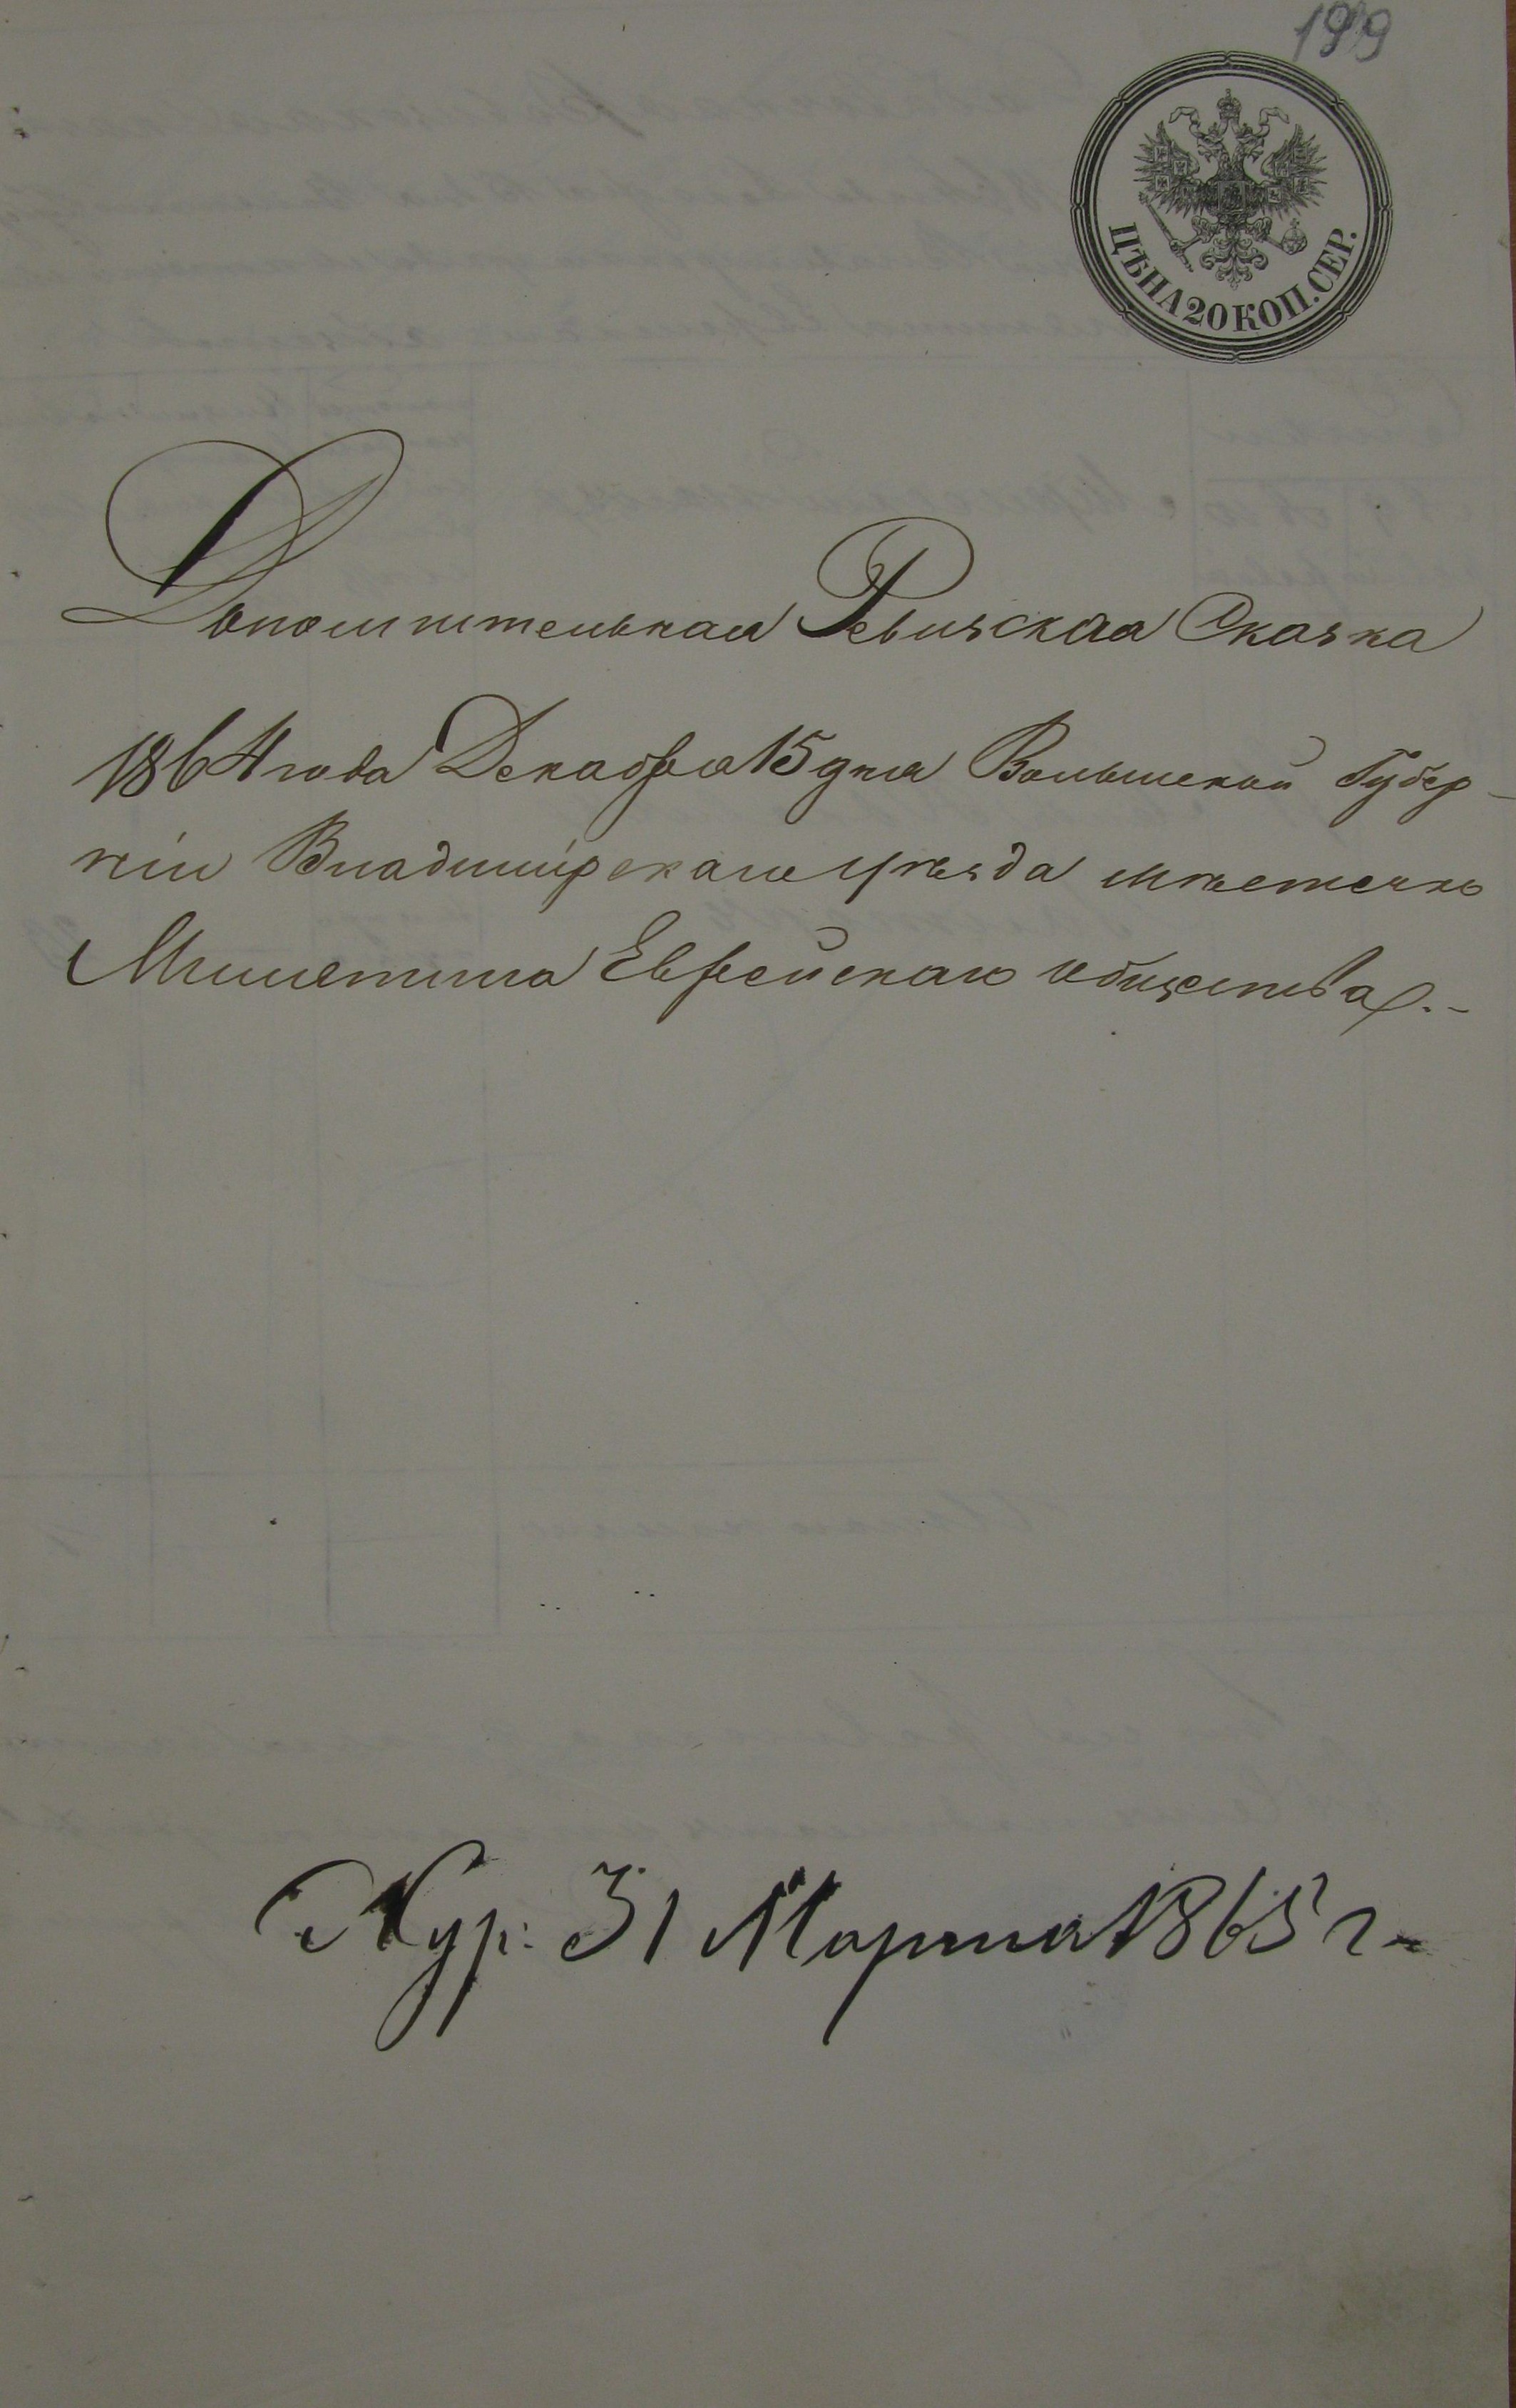 199
ЦѢНА 20 КОП. СЕР.
Дополнительная Ревизская Сказка
1864 года Декабря 15 дня Волынской Губер-
ніи Владимірскаго уѣзда мѣстечко
Милетина Еврейскаго общества.-
Жур: 31 Марта 1865 г.